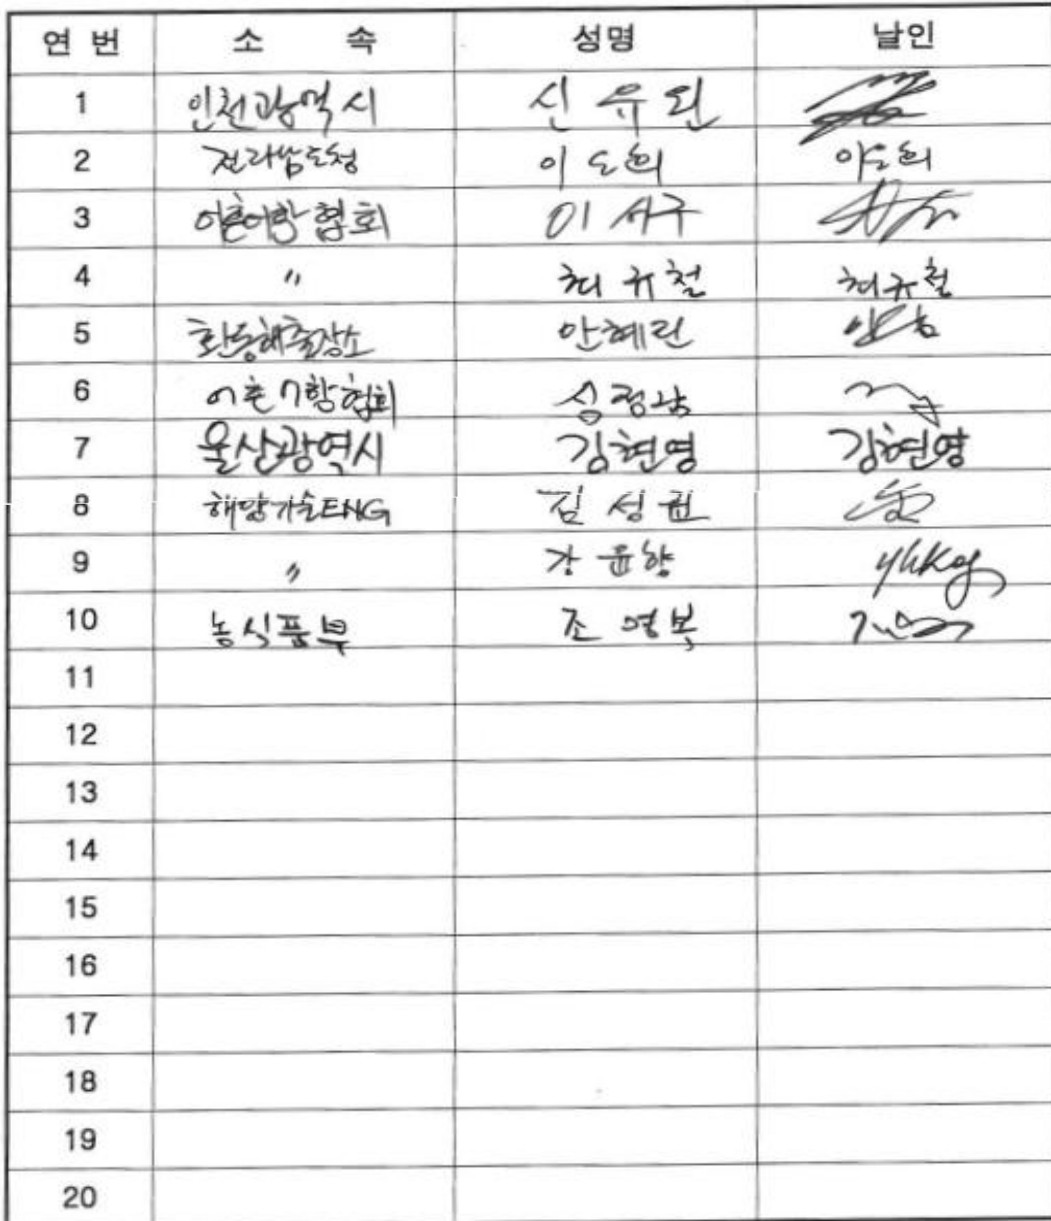 연 번 소 속 성명 날인
1 인천광역시 신유원
2 전라남도청 이도희 이도희
3 어촌어항협회 이서구
4 〃 최규철 최규철
5 환동해출장소 안혜린
6 어촌어항협회
7 울산광역시 김현영 김현영
8 해양기술ENG 김성권
9 〃 강윤향
10 농식품부 조영복
11
12
13
14
15
16
17
18
19
20